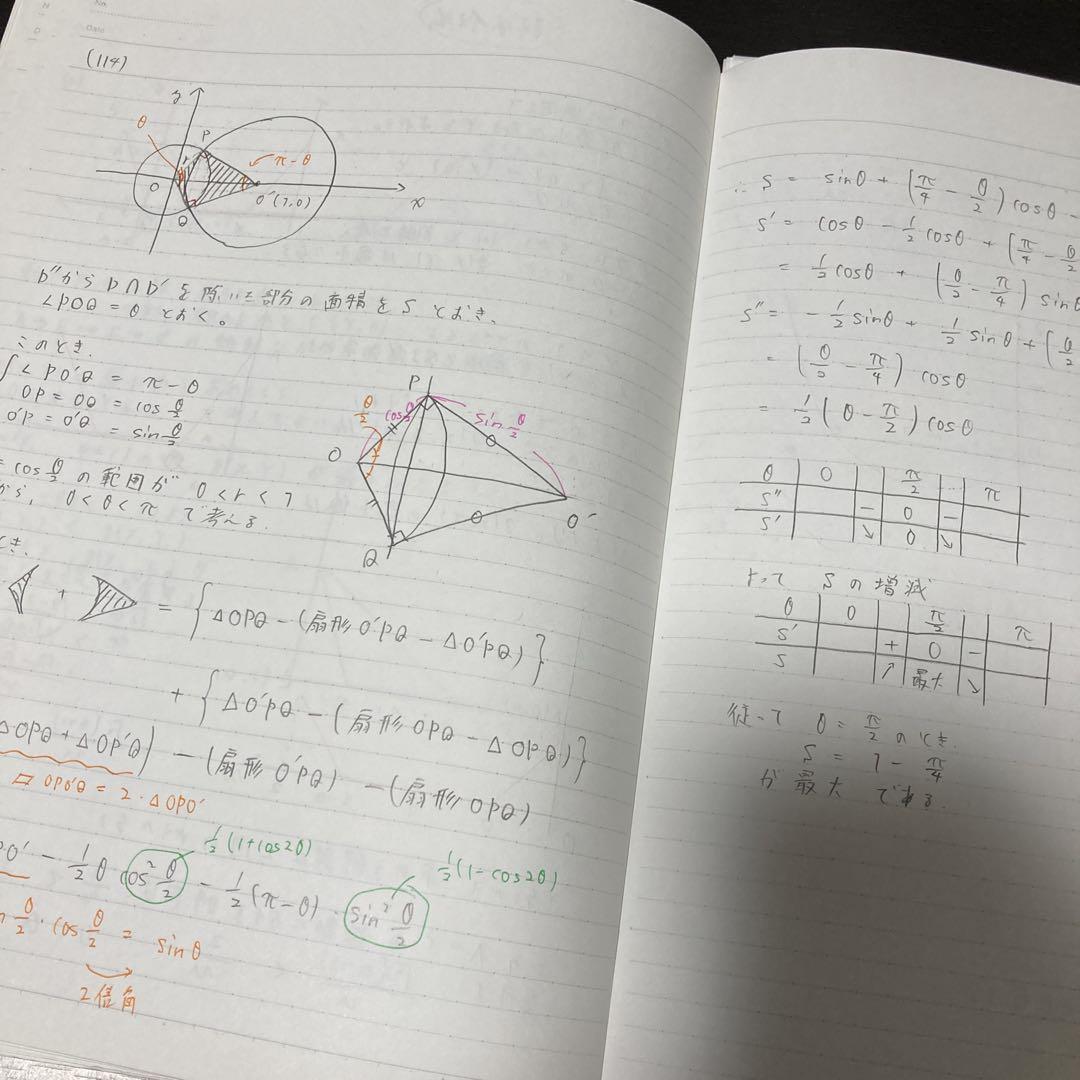 No.
Date
(114)
y
θ
P
r
π-θ
O
O'(1,0)
x
Q
D''から D∩D' を除いた部分の面積を S とおき、
∠POQ = θ とおく。
このとき、
∠PO'Q = π-θ
OP = OQ = cos θ/2
O'P = O'Q = sin θ/2
= cos θ/2 の範囲が 0<r<1
から、0<θ<π で考える。
とき、
P
θ/2
cos θ/2
sin θ/2
O
O'
Q
+ = {△OPQ - (扇形O'PQ - △O'PQ)}
+ {△O'PQ - (扇形OPQ - △OPQ)}
△OPQ + △OP'Q) - (扇形O'PQ) - (扇形OPQ)
□OPO'Q = 2・△OPO'
1/2(1+cos2θ)
1/2(1-cos2θ)
PO' - 1/2 θ cos² θ/2 - 1/2(π-θ)・sin² θ/2
θ/2・cos θ/2 = sinθ
2倍角
∴ S = sinθ + (π/4 - θ/2)cosθ -
S' = cosθ - 1/2 cosθ + (π/4 - θ/2
= 1/2 cosθ + (θ/2 - π/4) sinθ
S'' = -1/2 sinθ + 1/2 sinθ + (θ/2
= (θ/2 - π/4) cosθ
= 1/2 (θ - π/2) cosθ
θ 0 π/2 … π
S'' - 0 -
S' ↘ 0 ↘
よって Sの増減
θ 0 π/2 π
S' + 0 -
S ↗ 最大 ↘
従って θ = π/2 のとき、
S = 1 - π/4
が最大である.